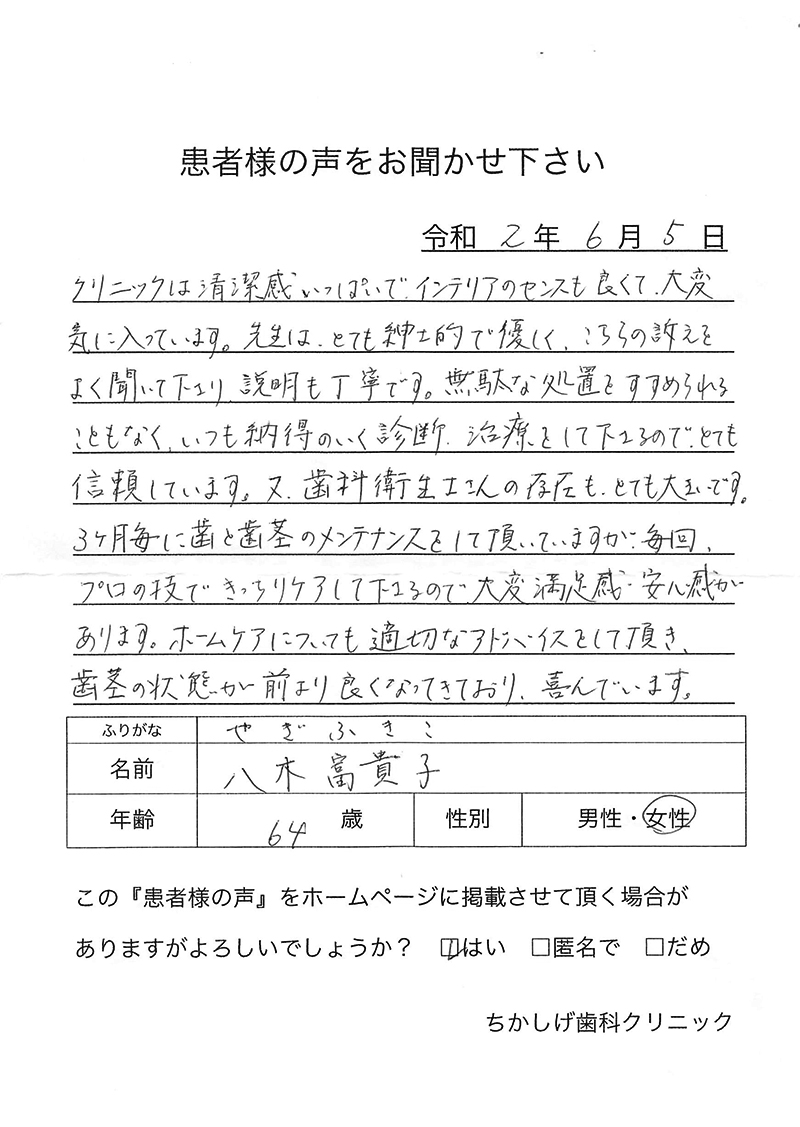 患者様の声をお聞かせ下さい
令和 2 年 6 月 5 日
クリニックは清潔感いっぱいで、インテリアのセンスも良くて、大変
気に入っています。先生は、とても紳士的で優しく、こちらの訴えを
よく聞いて下さり、説明も丁寧です。無駄な処置をすすめられる
こともなく、いつも納得のいく診断、治療をして下さるので、とても
信頼しています。又、歯科衛生士さんの存在も、とても大きいです。
3ヶ月毎に歯と歯茎のメンテナンスをして頂いていますが、毎回、
プロの技できっちりケアして下さるので大変満足感・安心感が
あります。ホームケアについても適切なアドバイスをして頂き、
歯茎の状態が前より良くなってきており、喜んでいます。
ふりがな やぎふきこ
名前 八木富貴子
年齢 64 歳 性別 男性・女性
この『患者様の声』をホームページに掲載させて頂く場合が
ありますがよろしいでしょうか？ ☑はい □匿名で □だめ
ちかしげ歯科クリニック